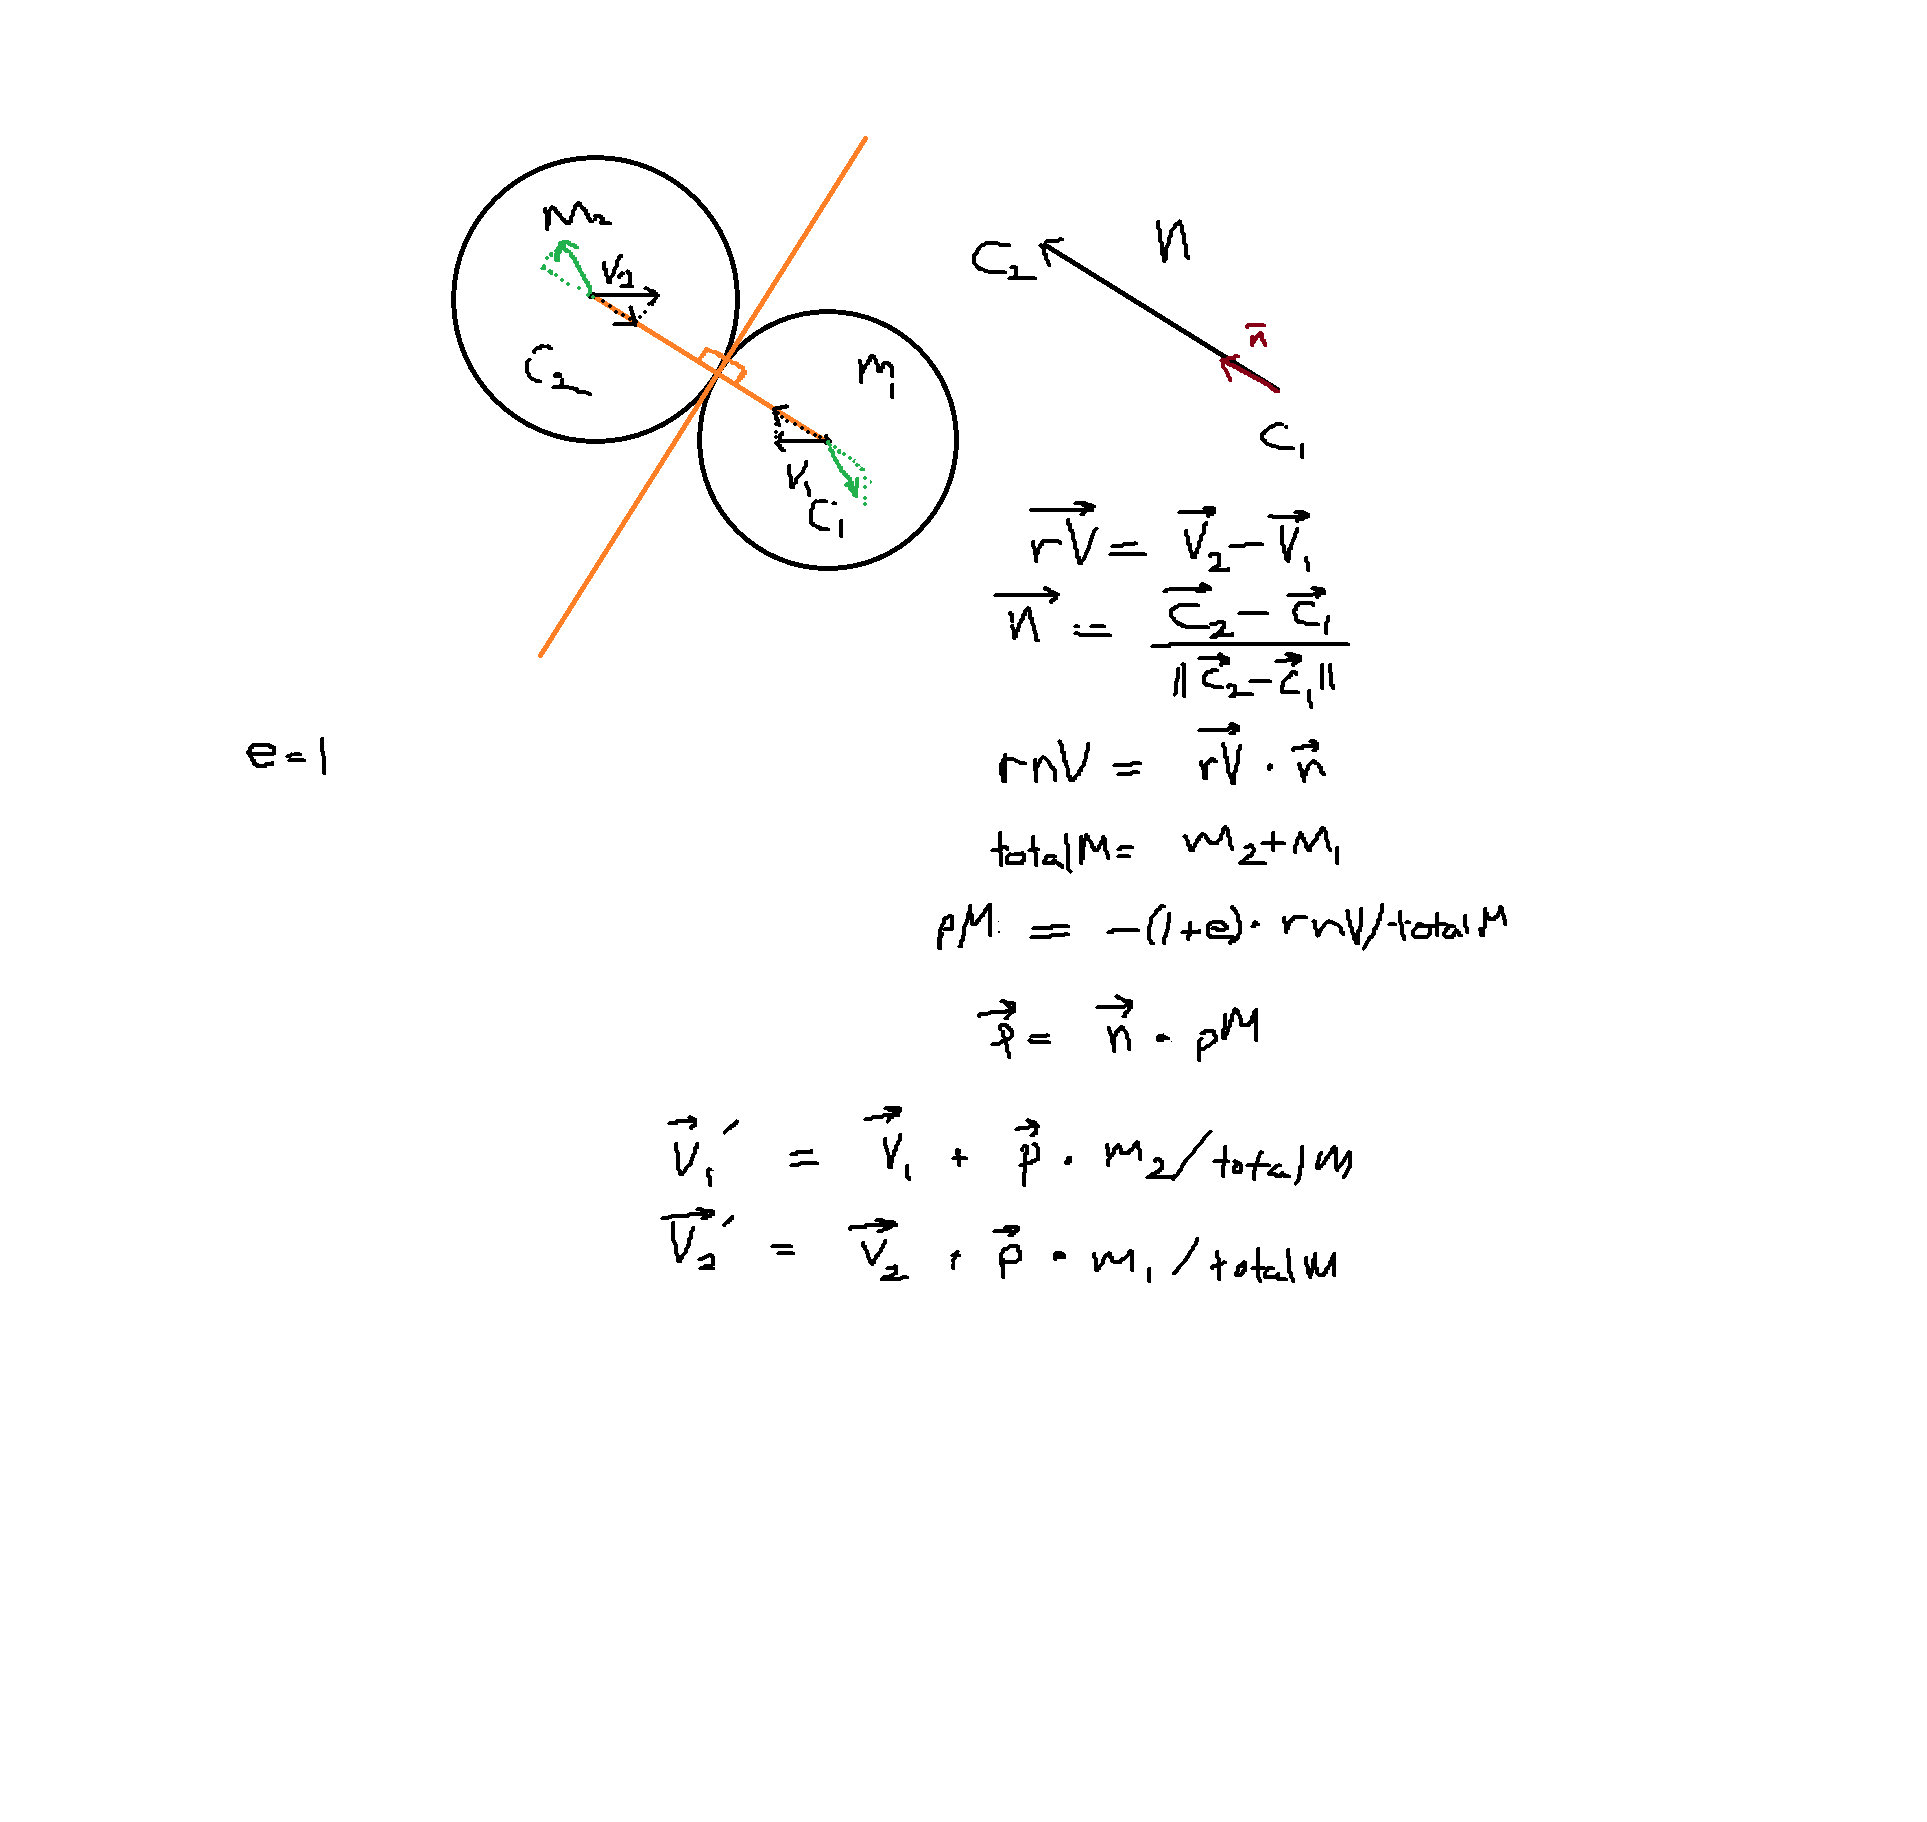 m₂
V₂
C₂
m₁
V₁
C₁
C₂
n
n̅
C₁
r⃗V = V⃗₂ - V⃗₁
n⃗ = (C⃗₂ - C⃗₁) / ‖C⃗₂ - C⃗₁‖
e = 1
rnV = r⃗V · n⃗
totalM = m₂ + m₁
pM = -(1+e) · rnV/totalM
p⃗ = n⃗ · pM
V⃗₁′ = V⃗₁ + p⃗ · m₂/totalM
V⃗₂′ = V⃗₂ · p⃗ · m₁/totalM